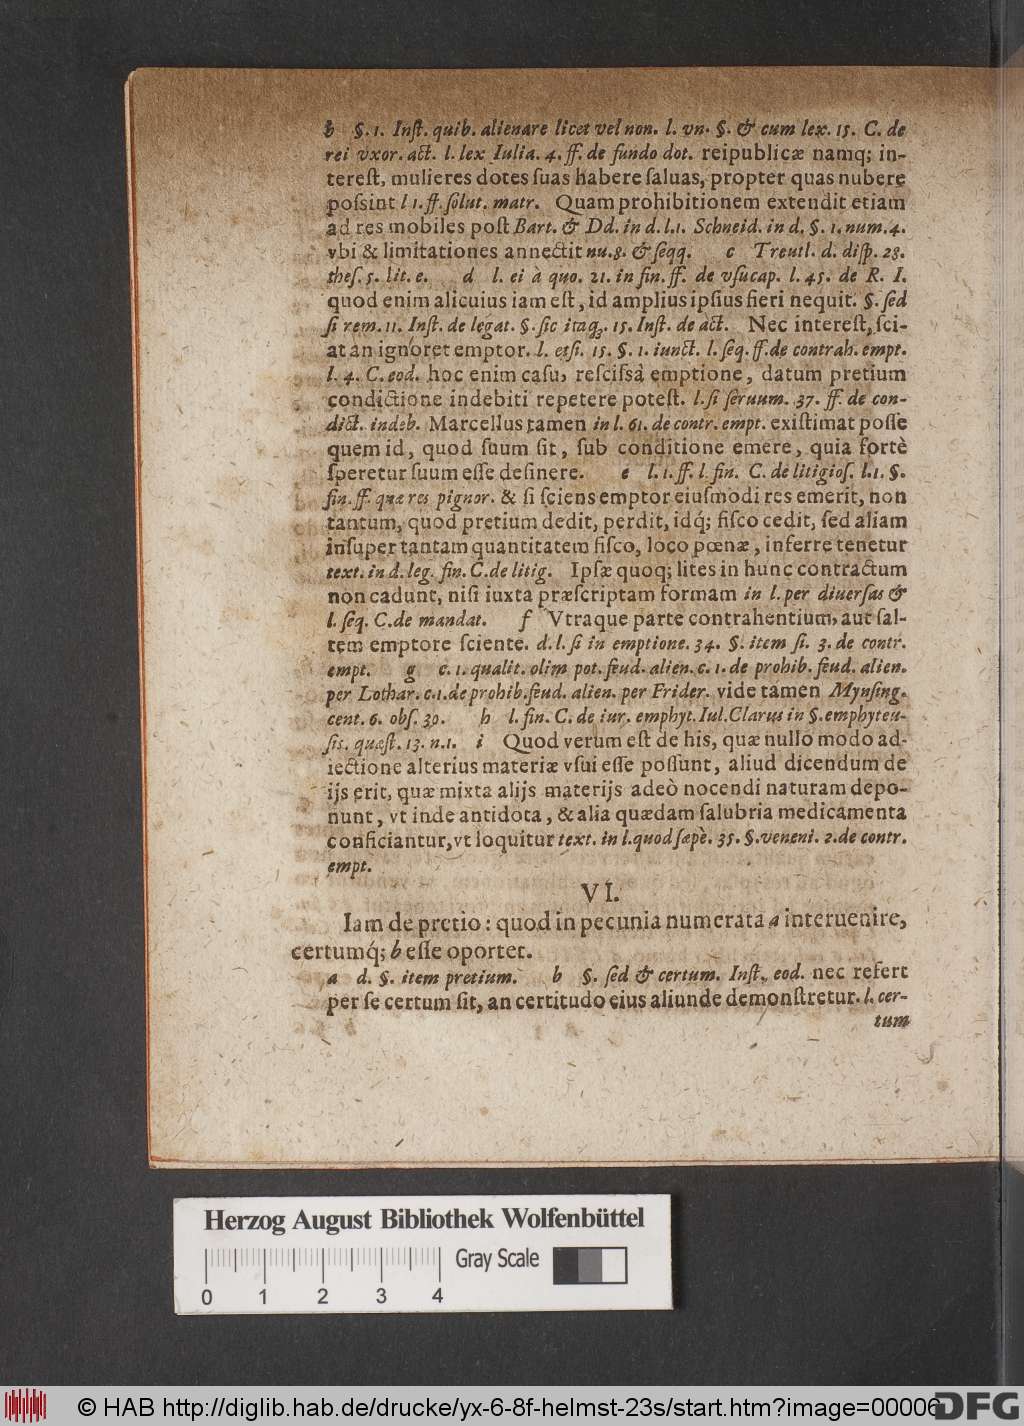 b §. 1. Inſt. quib. alienare licet vel non. l. vn. §. & cum lex. 15. C. de
rei vxor. act. l. lex Iulia. 4. ff. de fundo dot. reipublicæ namq; in-
tereſt, mulieres dotes ſuas habere ſaluas, propter quas nubere
poſsint l 1. ff. ſolut. matr. Quam prohibitionem extendit etiam
ad res mobiles poſt Bart. & Dd. in d. l. 1. Schneid. in d. §. 1. num. 4.
vbi & limitationes annectit nu. 8. & ſeqq. c Treutl. d. diſp. 28.
theſ. 5. lit. e. d l. ei à quo. 21. in fin. ff. de vſucap. l. 45. de R. I.
quod enim alicuius iam eſt, id amplius ipſius fieri nequit. §. ſed
ſi rem. 11. Inſt. de legat. §. ſic itaq;. 15. Inſt. de act. Nec intereſt, ſci-
at an ignoret emptor. l. etſi. 15. §. 1. iunct. l. ſeq. ff. de contrah. empt.
l. 4. C. eod. hoc enim caſu, reſciſsâ emptione, datum pretium
condictione indebiti repetere poteſt. l. ſi ſeruum. 37. ff. de con-
dict. indeb. Marcellus tamen in l. 61. de contr. empt. exiſtimat poſſe
quem id, quod ſuum ſit, ſub conditione emere, quia fortè
ſperetur ſuum eſſe deſinere. e l. 1. ff. l. fin. C. de litigioſ. l. 1. §.
fin. ff. quæ res pignor. & ſi ſciens emptor eiuſmodi res emerit, non
tantum, quod pretium dedit, perdit, idq́; fiſco cedit, ſed aliam
inſuper tantam quantitatem fiſco, loco pœnæ, inferre tenetur
text. in d. leg. fin. C. de litig. Ipſæ quoq; lites in hunc contractum
non cadunt, niſi iuxta præſcriptam formam in l. per diuerſas &
l. ſeq. C. de mandat. f Vtraque parte contrahentium, aut ſal-
tem emptore ſciente. d. l. ſi in emptione. 34. §. item ſi. 3. de contr.
empt. g c. 1. qualit. olim pot. feud. alien. c. 1. de prohib. feud. alien.
per Lothar. c. 1. de prohib. feud. alien. per Frider. vide tamen Mynſing.
cent. 6. obſ. 30. h l. fin. C. de iur. emphyt. Iul. Clarus in §. emphyteu-
ſis. quæſt. 13. n. 1. i Quod verum eſt de his, quæ nullo modo ad-
iectione alterius materiæ vſui eſſe poſſunt, aliud dicendum de
ijs erit, quæ mixta alijs materijs adeò nocendi naturam depo-
nunt, vt inde antidota, & alia quædam ſalubria medicamenta
conficiantur, vt loquitur text. in l. quod ſæpè. 35. §. veneni. 2. de contr.
empt.
VI.
Iam de pretio: quod in pecunia numerata a interuenire,
certumq́; b eſſe oportet.
a d. §. item pretium. b §. ſed & certum. Inſt. eod. nec refert
per ſe certum ſit, an certitudo eius aliunde demonſtretur. l. cer-
tum
Herzog August Bibliothek Wolfenbüttel
Gray Scale
0 1 2 3 4
© HAB http://diglib.hab.de/drucke/yx-6-8f-helmst-23s/start.htm?image=00006
DFG